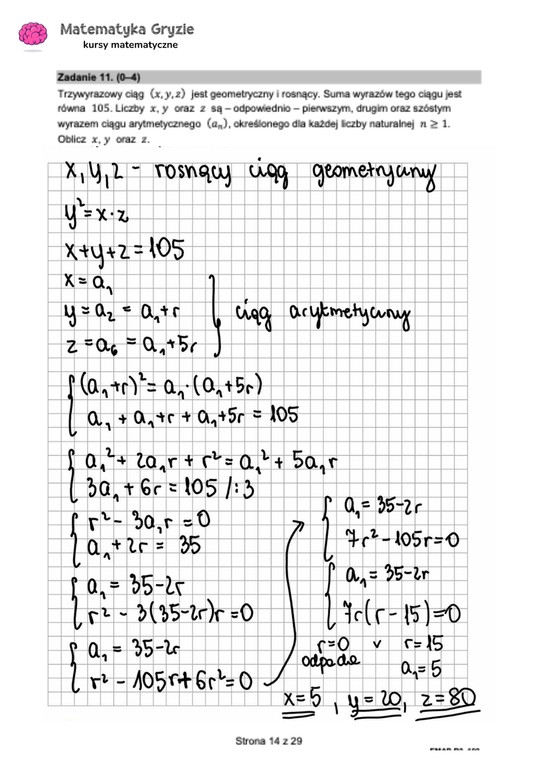 Matematyka Gryzie
kursy matematyczne
Zadanie 11. (0–4)
Trzywyrazowy ciąg (x, y, z) jest geometryczny i rosnący. Suma wyrazów tego ciągu jest
równa 105. Liczby x, y oraz z są – odpowiednio – pierwszym, drugim oraz szóstym
wyrazem ciągu arytmetycznego (aₙ), określonego dla każdej liczby naturalnej n ≥ 1.
Oblicz x, y oraz z.
x, y, z - rosnący ciąg geometryczny
y² = x · z
x + y + z = 105
x = a₁
y = a₂ = a₁ + r } ciąg arytmetyczny
z = a₆ = a₁ + 5r
{ (a₁ + r)² = a₁ · (a₁ + 5r)
a₁ + a₁ + r + a₁ + 5r = 105
{ a₁² + 2a₁r + r² = a₁² + 5a₁r
3a₁ + 6r = 105 /:3
{ r² - 3a₁r = 0
a₁ + 2r = 35
{ a₁ = 35 - 2r
r² - 3(35 - 2r)r = 0
{ a₁ = 35 - 2r
r² - 105r + 6r² = 0
{ a₁ = 35 - 2r
7r² - 105r = 0
{ a₁ = 35 - 2r
7r(r - 15) = 0
r = 0 v r = 15
odpada
a₁ = 5
x = 5, y = 20, z = 80
Strona 14 z 29